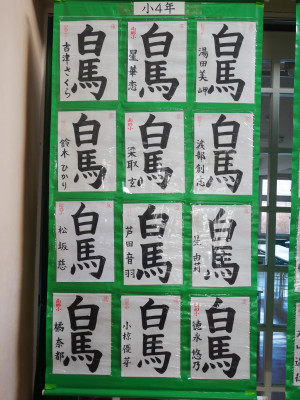 小4年
白馬
湯田美岬
白馬
星華恋
白馬
吉津さくら
白馬
渡部創志
白馬
梁取玄
白馬
鈴木ひかり
白馬
白馬
芦田音羽
白馬
松坂慈
白馬
徳永悠乃
白馬
小椋優華
白馬
橘奈都